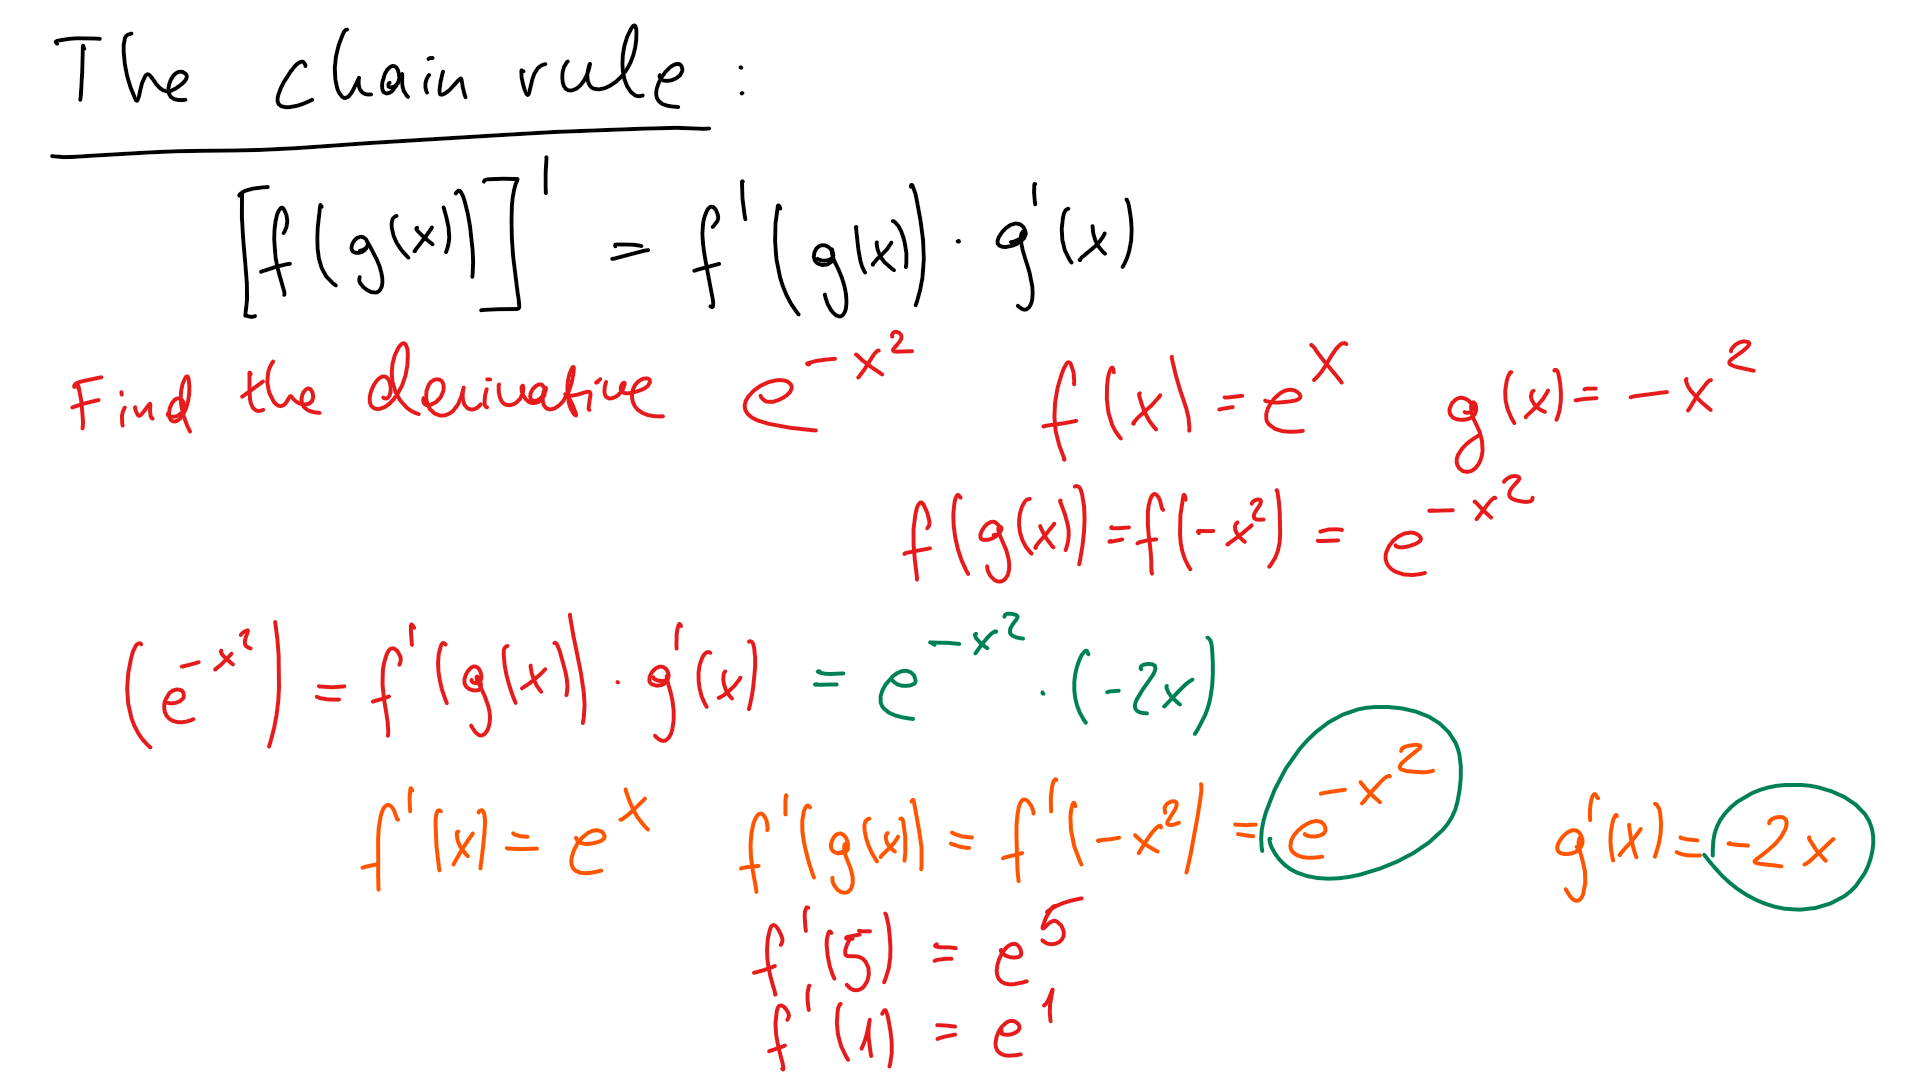 The chain rule:
[f(g(x))]' = f'(g(x)) · g'(x)
Find the derivative e^{-x^2} f(x) = e^x g(x) = -x^2
f(g(x)) = f(-x^2) = e^{-x^2}
(e^{-x^2}) = f'(g(x)) · g'(x) = e^{-x^2} · (-2x)
f'(x) = e^x f'(g(x)) = f'(-x^2) = e^{-x^2} g'(x) = -2x
f'(5) = e^5
f'(1) = e^1